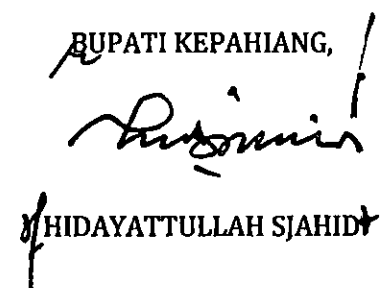 BUPATI KEPAHIANG,
HIDAYATTULLAH SJAHID